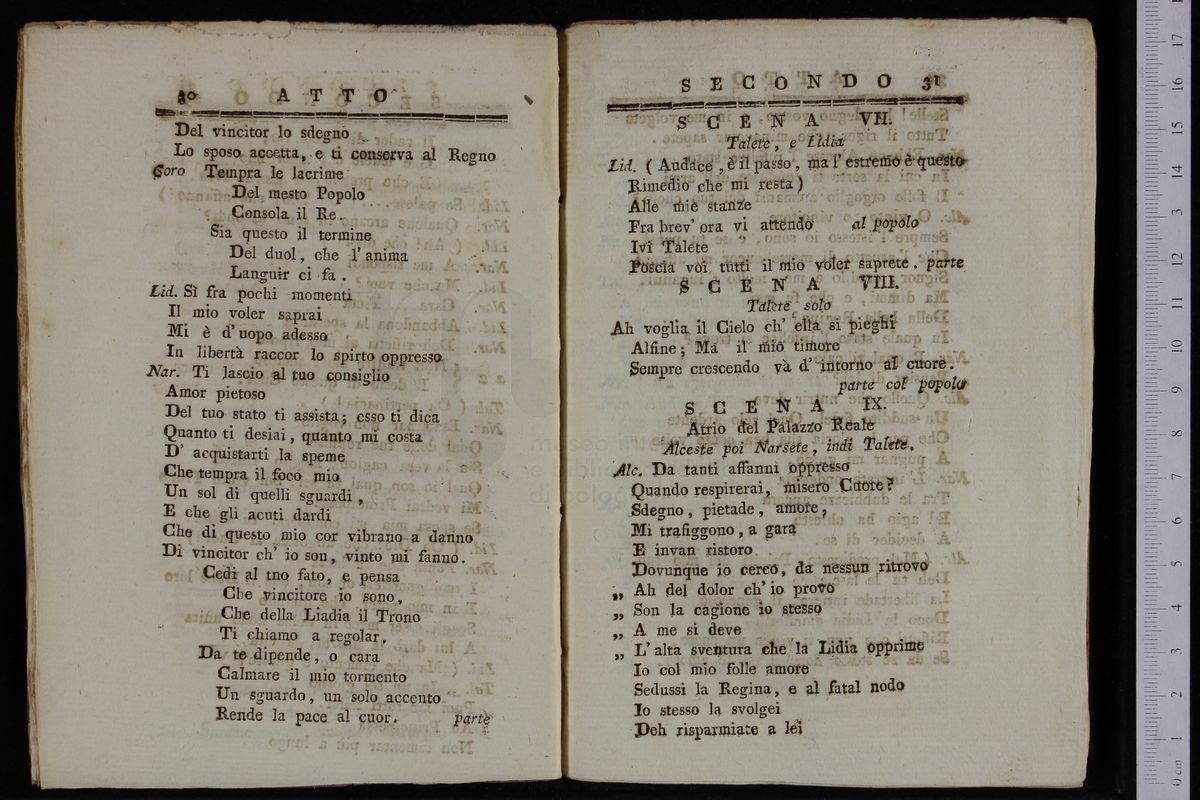 30 ATTO
Del vincitor lo sdegno
Lo sposo accetta, e ti conserva al Regno
Coro Tempra le lacrime
Del mesto Popolo
Consola il Re.
Sia questo il termine
Del duol, che l'anima
Languir ci fa.
Lid. Sì fra pochi momenti
Il mio voler saprai
Mi è d'uopo adesso
In libertà raccor lo spirto oppresso
Nar. Ti lascio al tuo consiglio
Amor pietoso
Del tuo stato ti assista; esso ti dica
Quanto ti desiai, quanto mi costa
D' acquistarti la speme
Che tempra il foco mio
Un sol di quelli sguardi,
E che gli acuti dardi
Che di questo mio cor vibrano a danno
Di vincitor ch' io son, vinto mi fanno.
Cedi al tno fato, e pensa
Che vincitore io sono,
Che della Liadia il Trono
Ti chiamo a regolar.
Da te dipende, o cara
Calmare il mio tormento
Un sguardo, un solo accento
Rende la pace al cuor. parte
SECONDO 31
SCENA VII.
Talete, e Lidia
Lid. ( Audace, è il passo, ma l' estremo è questo
Rimedio che mi resta)
Alle mie stanze
Fra brev' ora vi attendo al popolo
Ivi Talete
Poscia voi tutti il mio voler saprete. parte
SCENA VIII.
Talete solo
Ah voglia il Cielo ch' ella si pieghi
Alfine; Ma il mio timore
Sempre crescendo và d' intorno al cuore.
parte col popolo
SCENA IX.
Atrio del Palazzo Reale
Alceste poi Narsete, indi Talete.
Alc. Da tanti affanni oppresso
Quando respirerai, misero Cuore?
Sdegno, pietade, amore,
Mi trafiggono, a gara
E invan ristoro
Dovunque io cerco, da nessun ritrovo
„ Ah del dolor ch' io provo
„ Son la cagione io stesso
„ A me si deve
„ L' alta sventura che la Lidia opprime
Io col mio folle amore
Sedussi la Regina, e al fatal nodo
Io stesso la svolgei
Deh risparmiate a lei